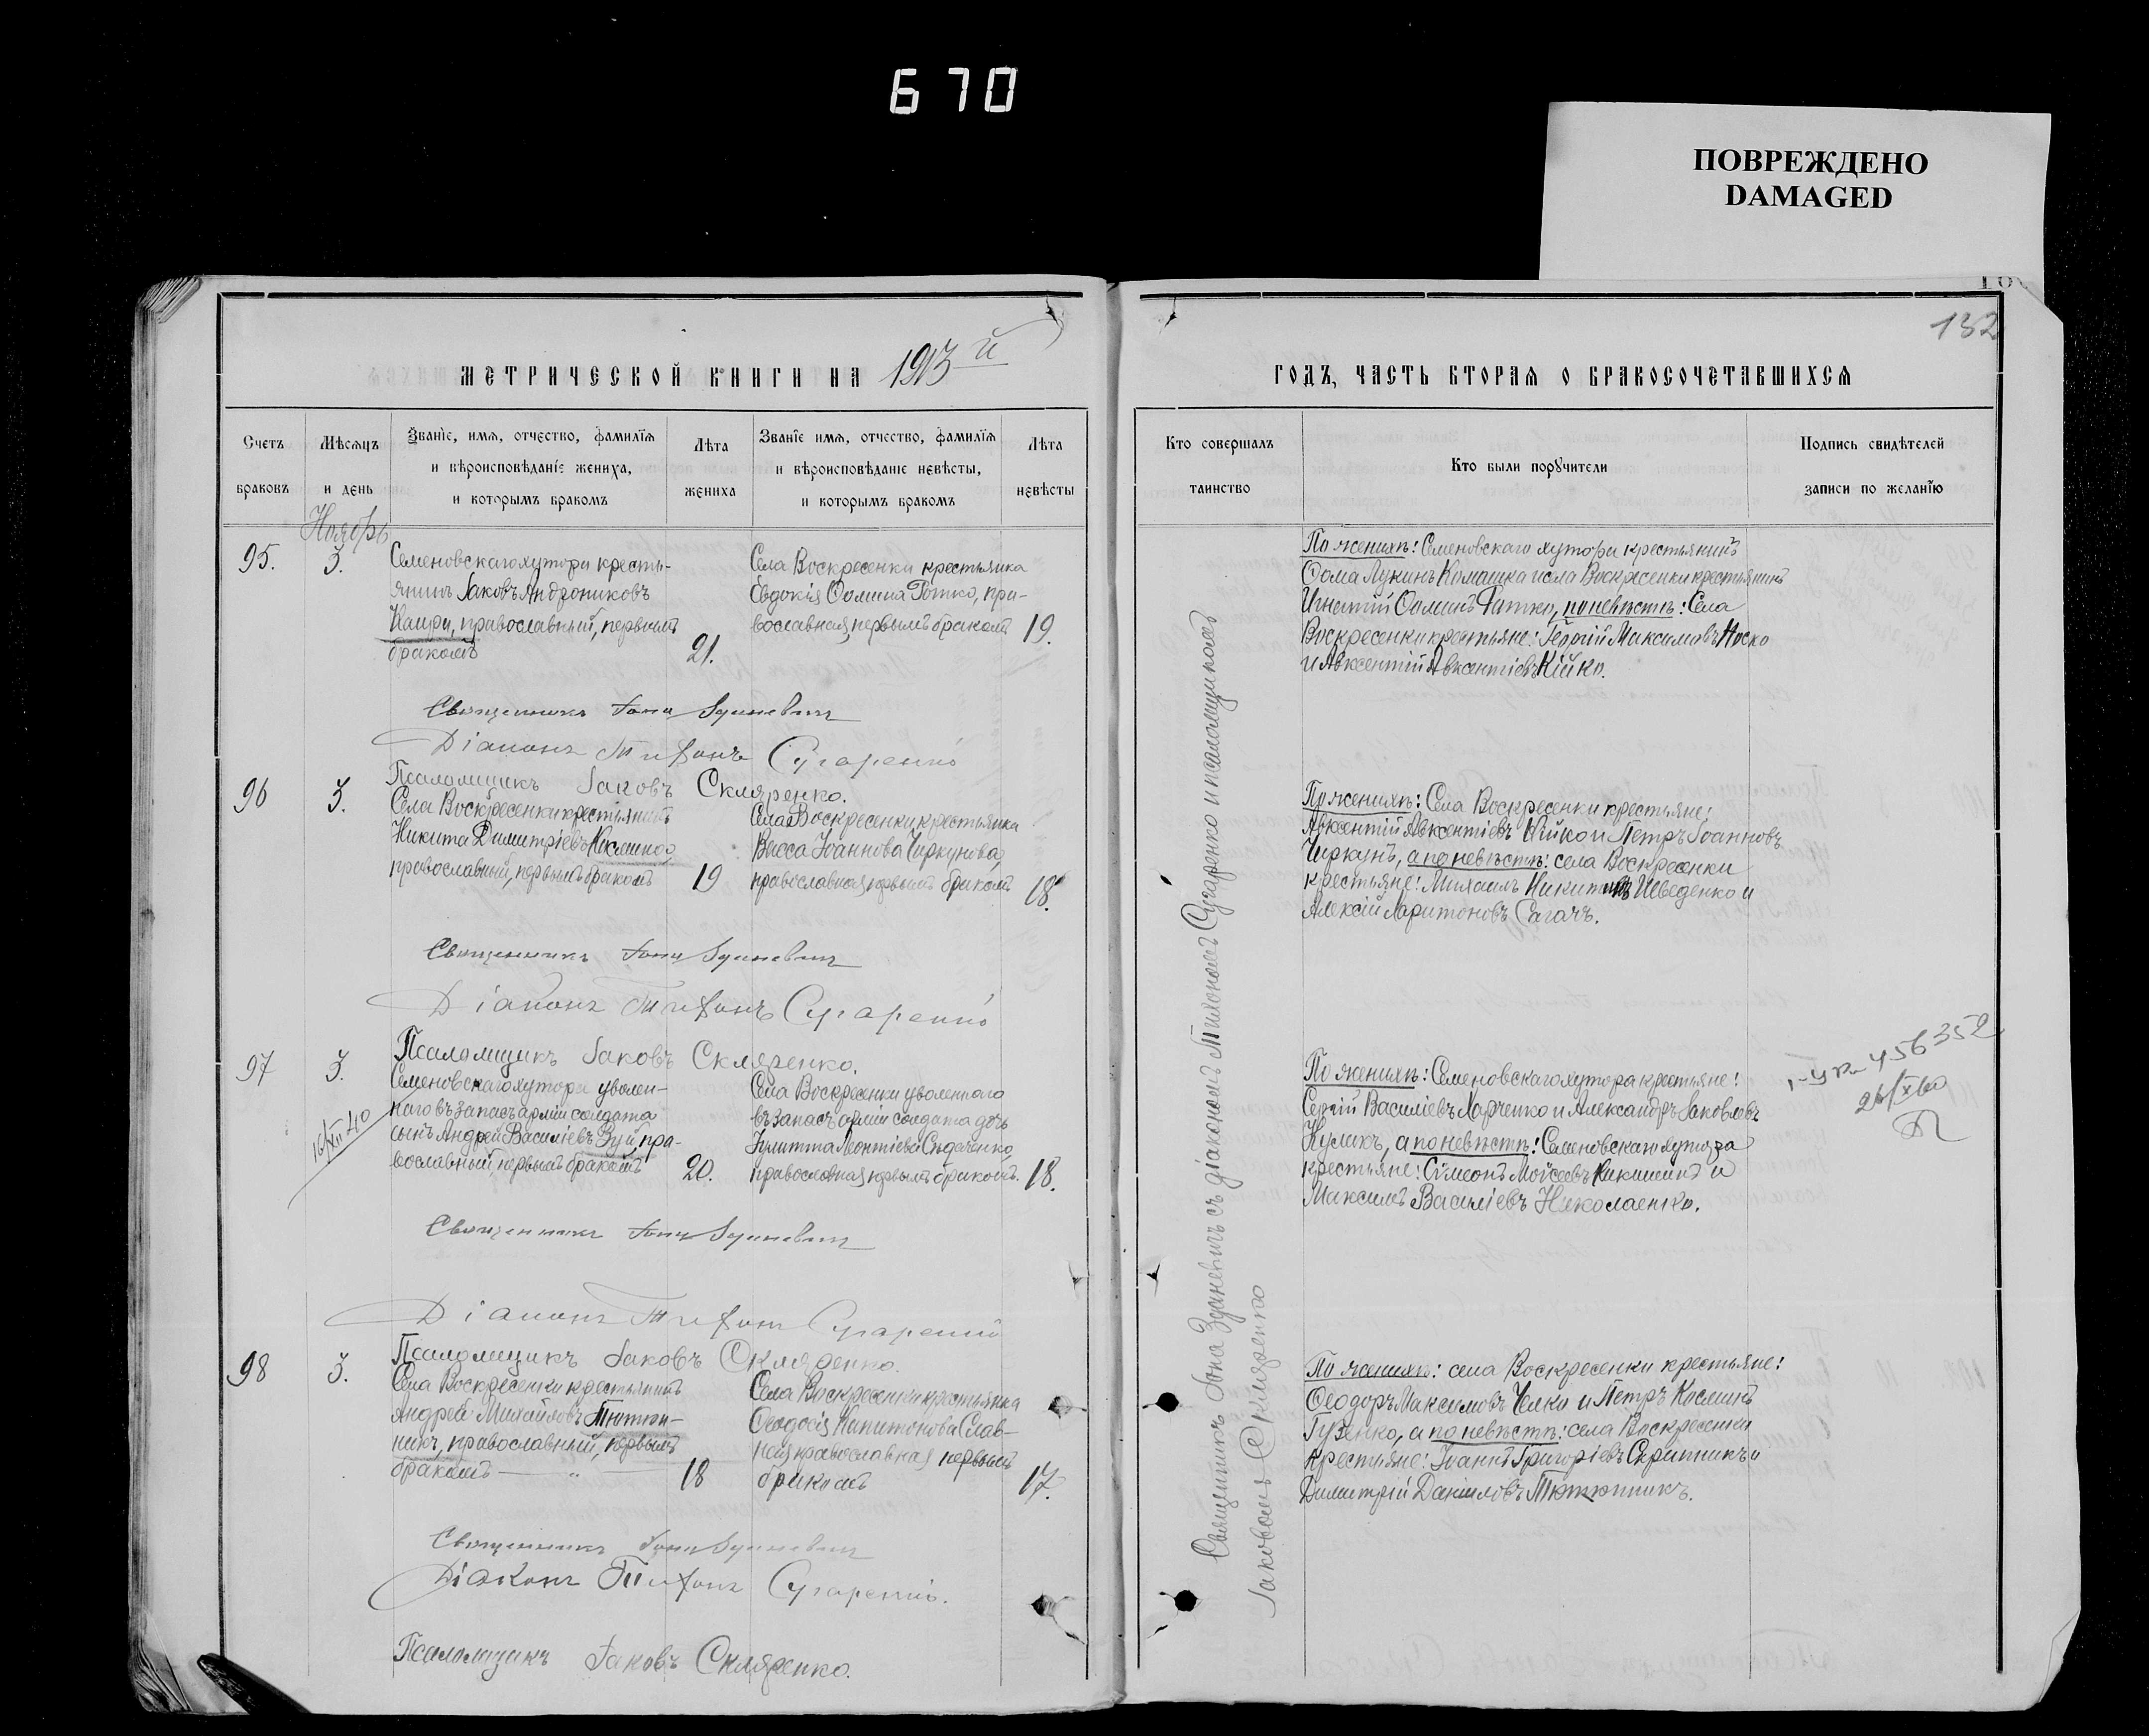 670
ПОВРЕЖДЕНО
DAMAGED
132
МЕТРИЧЕСКОЙ КНИГИ НА 1913й
ГОДЪ, ЧАСТЬ ВТОРАЯ О БРАКОСОЧЕТАВШИХСЯ
Счетъ браковъ
Мѣсяцъ и день
Званіе, имя, отчество, фамилія
и вѣроисповѣданіе жениха,
и которымъ бракомъ
Лѣта жениха
Званіе имя, отчество, фамилія
и вѣроисповѣданіе невѣсты,
и которымъ бракомъ
Лѣта невѣсты
Кто совершалъ таинство
Кто были поручители
Подпись свидѣтелей
записи по желанію
Ноябрь
95.
3.
Семеновскаго хутора кресть-
янинъ Іаковъ Андрониковъ
православный, первымъ
бракомъ
21.
Села Воскресенки крестьянка
Евдокія Ѳомина пра-
вославная, первымъ бракомъ
19.
По женихѣ: Семеновскаго хутора крестьянинъ
Ѳома Лукинъ Комашка и села Воскресенки крестьянинъ
Игнатій Ѳоминъ по невѣстѣ: Села
Воскресенки крестьяне: Георгій Максимовъ Носко
и Авксентій Авксентіевъ Кійко.
Священникъ Іона Зданевичъ
Діаконъ Тихонъ Сухаренко
Псаломщикъ Іаковъ Скляренко.
96
3.
Села Воскресенки крестьянинъ
Никита Димитріевъ
православный, первымъ бракомъ
19
Села Воскресенки крестьянка
Васса Іоаннова Чиркунова,
православная, первымъ бракомъ
18.
По женихѣ: Села Воскресенки крестьяне:
Авксентій Авксентіевъ Кійко и Петръ Іоанновъ
Чиркунъ, а по невѣстѣ: села Воскресенки
крестьяне: Михаилъ Никитинъ Шведенко и
Алексій Харитоновъ Сагачъ.
Священникъ Іона Зданевичъ
Діаконъ Тихонъ Сухаренко
Псаломщикъ Іаковъ Скляренко.
97
3.
16/XII 40
Семеновскаго хутора уволен-
наго въ запасъ арміи солдата
сынъ Андрей Василіевъ Зуй, пра-
вославный, первымъ бракомъ
20.
Села Воскресенки уволеннаго
въ запасъ арміи солдата дочь
Іулитта Леонтіева
православная, первымъ бракомъ.
18.
По женихѣ: Семеновскаго хутора крестьяне:
Сергій Василіевъ Харченко и Александръ Іаковлевъ
Куликъ, а по невѣстѣ: Семеновскаго хутора
крестьяне: Сѵмеонъ Моѵсеевъ и
Максимъ Василіевъ Николаенко.
456352
26/X 60
Священникъ Іона Зданевичъ
Діаконъ Тихонъ Сухаренко
Псаломщикъ Іаковъ Скляренко.
98
3.
Села Воскресенки крестьянинъ
Андрей Михайловъ Тютюн-
никъ, православный, первымъ
бракомъ — " —
18
Села Воскресенки крестьянка
Ѳеодосія Капитонова Слав-
ная православная первымъ
бракомъ
17.
По женихѣ: села Воскресенки крестьяне:
Ѳеодоръ Максимовъ и Петръ Косминъ
Гузенко, а по невѣстѣ: села Воскресенки
крестьяне: Іоаннъ Григоріевъ Скрипникъ и
Димитрій Даніиловъ Тютюнникъ.
Священникъ Іона Зданевичъ
Діаконъ Тихонъ Сухаренко.
Псаломщикъ Іаковъ Скляренко.
Священникъ Іона Зданевичъ съ діакономъ Тихономъ Сухаренко и псаломщикомъ
Іаковомъ Скляренко